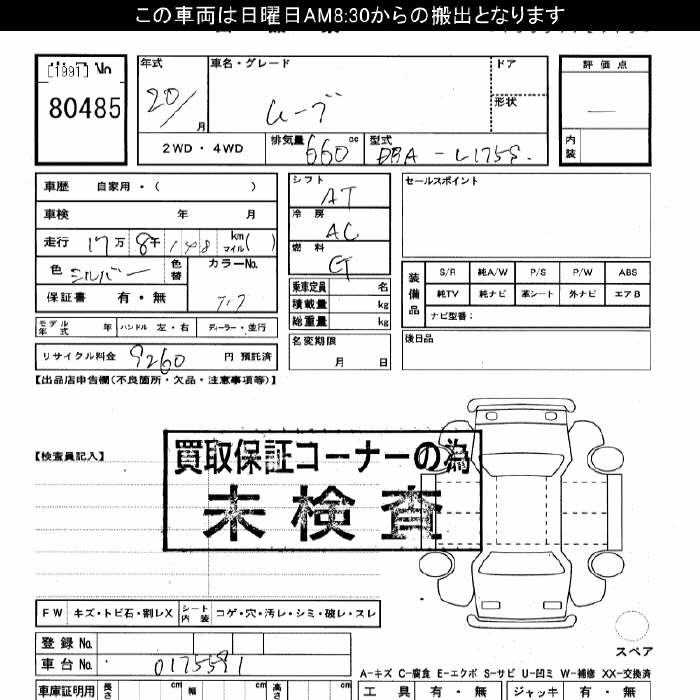 この車両は日曜日AM8:30からの搬出となります
[1991] No
80485
年式 車名・グレード ドア 評価点
20/ 月 ムーブ 形状
2WD・4WD 排気量 660 cc 型式 DBA-L175S. 内装
車歴 自家用・( )
車検 年 月
走行 17万 8千 148 km マイル( )
色 シルバー 色替 カラーNo.
保証書 有・無 T17
モデル年式 年 ハンドル 左・右 ディーラー・並行
リサイクル料金 9260 円 預託済
シフト AT
冷房 AC
燃料 G
乗車定員 名
積載量 kg
総重量 kg
名変期限
月 日
セールスポイント
装備品 S/R 純A/W P/S P/W ABS
純TV 純ナビ 革シート 外ナビ エアB
ナビ型番:
後日品
【出品店申告欄(不良箇所・欠品・注意事項等)】
【検査員記入】
買取保証コーナーの為
未検査
FW キズ・トビ石・割レX シート内装 コゲ・穴・汚レ・シミ・破レ・スレ
スペア
登録No.
車台No. 0175591
A-キズ C-腐食 E-エクボ S-サビ U-凹ミ W-補修 XX-交換済
車庫証明用 長さ cm 幅 cm 高さ cm 工具 有・無 ジャッキ 有・無